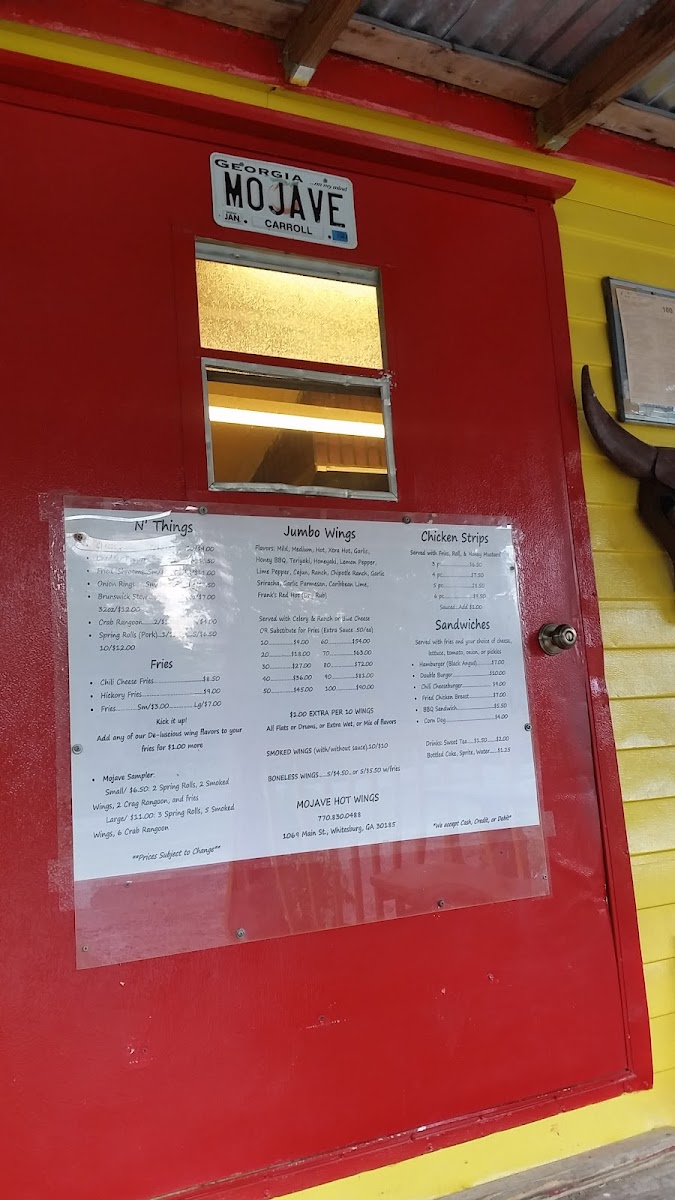 GEORGIA
...on my mind
MOJAVE
JAN
CARROLL
100
N' Things
$4.00
Onion Rings
Brunswick Stew $7.00
32oz/$12.00
Crab Rangoon $4.00
Spring Rolls (Pork) $6.50
10/$12.00
Fries
Chili Cheese Fries $8.50
Hickory Fries $9.00
Fries Sm/$3.00 Lg/$7.00
Kick it up!
Add any of our De-luscious wing flavors to your
fries for $1.00 more
Mojave Sampler
Small/ $6.50: 2 Spring Rolls, 2 Smoked
Wings, 2 Crag Rangoon, and fries
Large/ $11.00: 3 Spring Rolls, 5 Smoked
Wings, 6 Crab Rangoon
**Prices Subject to Change**
Jumbo Wings
Flavors: Mild, Medium, Hot, Xtra Hot, Garlic,
Honey BBQ, Teriyaki, Honeyaki, Lemon Pepper,
Lime Pepper, Cajun, Ranch, Chipotle Ranch, Garlic
Sriracha, Garlic Parmesan, Caribbean Lime,
Frank's Red Hot (Dry Rub)
Served with Celery & Ranch or Blue Cheese
OR Substitute for Fries (Extra Sauce .50/ea)
10 $9.00 60 $54.00
20 $18.00 70 $63.00
30 $27.00 80 $72.00
40 $36.00 90 $81.00
50 $45.00 100 $90.00
$1.00 EXTRA PER 10 WINGS
All Flats or Drums, or Extra Wet, or Mix of flavors
SMOKED WINGS (with/without sauce) 10/$10
BONELESS WINGS 5/$4.50 or 5/$5.50 w/fries
MOJAVE HOT WINGS
770.830.0488
1069 Main St., Whitesburg, GA 30185
Chicken Strips
Served with Fries, Roll, & Honey Mustard
3 pc
4 pc $7.50
5 pc
6 pc
Sauced: Add $1.00
Sandwiches
Served with fries and your choice of cheese,
lettuce, tomato, onion, or pickles
Hamburger (Black Angus) $7.00
Double Burger $10.00
Chili Cheeseburger $9.00
Fried Chicken Breast $7.00
BBQ Sandwich $5.50
Corn Dog $4.00
Drinks: Sweet Tea $1.50 $2.00
Bottled Coke, Sprite, Water $1.25
*We accept Cash, Credit, or Debit*